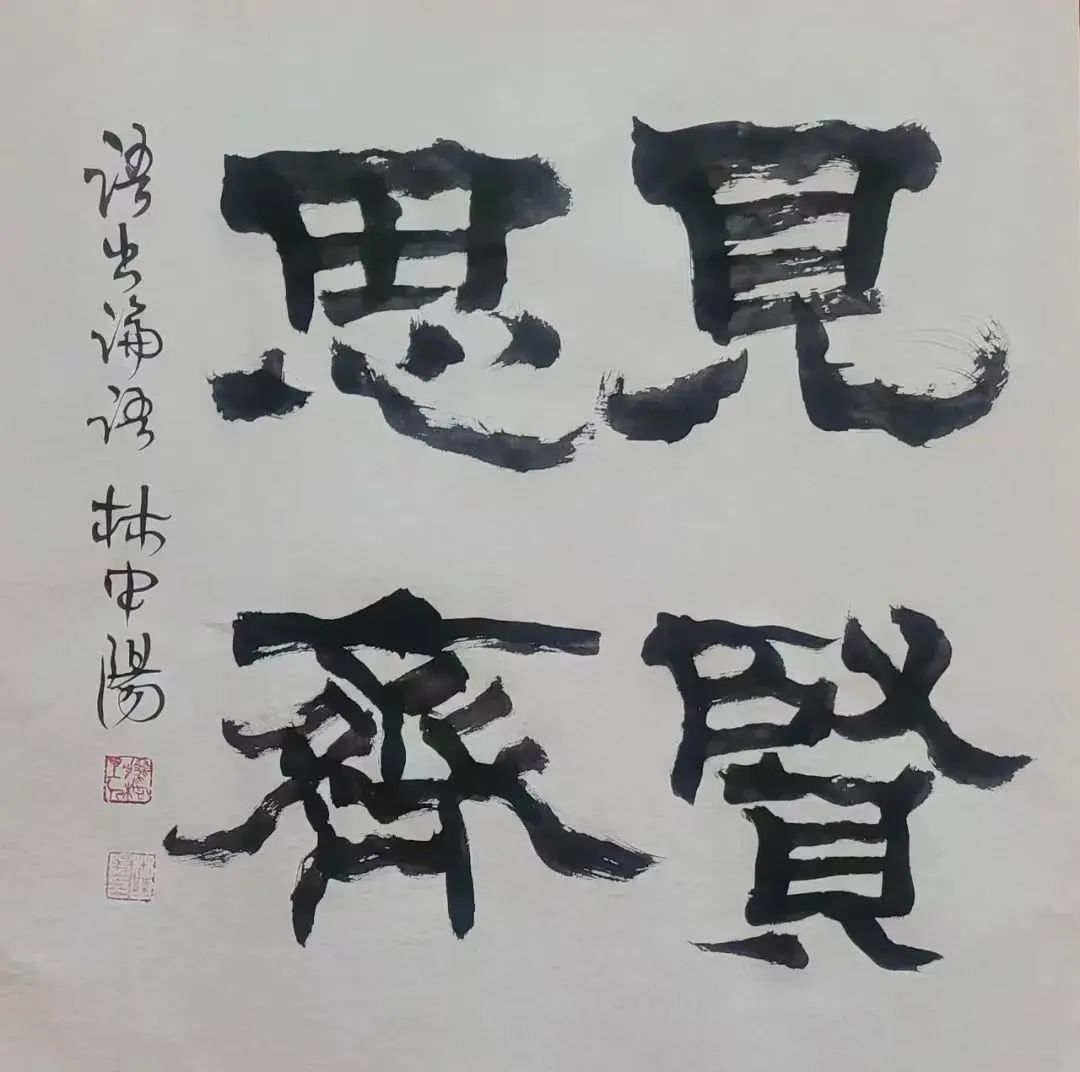 見賢
思齊
語出論語 林中陽